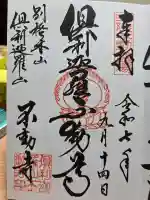 奉拝
令和七年
九月十四日
倶利迦羅不動尊
別格本山
倶利迦羅山
不動寺